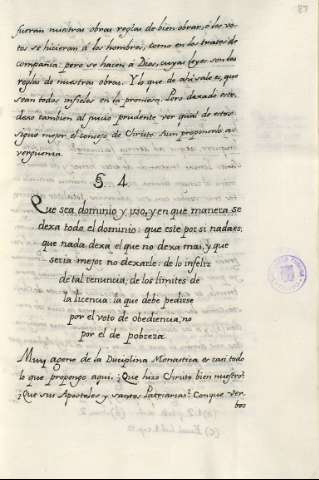 87
fueran nuestras obras reglas de bien obrar, ó los vo-
tos se hicieran á los hombres, como en los trates de
compañia; pero se hacen á Dios, cuyas leyes son las
reglas de nuestras obras. Y lo que de ahí sale es, que
sean todos infieles en la promesa. Pero dexado este,
dexo tambien al juicio prudente ver qual de estos
siguió mejor el consejo de Christo. Aun proponerlo a-
verguenza.
§. 4.
Que sea dominio y uso, y en que manera se
dexa todo el dominio: que este por si nada es,
que nada dexa el que no dexa mas, y que
seria mejor no dexarle: de lo infeliz
de tal renuncia, de los limites de
la licencia: la que debe pedirse
por el voto de obediencia, no
por el de pobreza.
Muy ageno de la Disciplina Monastica es casi todo
lo que propongo aqui. ¿Que hizo Christo bien nuestro?
¿Que sus Apostoles y santos Patriarcas? Con que ver-
bos